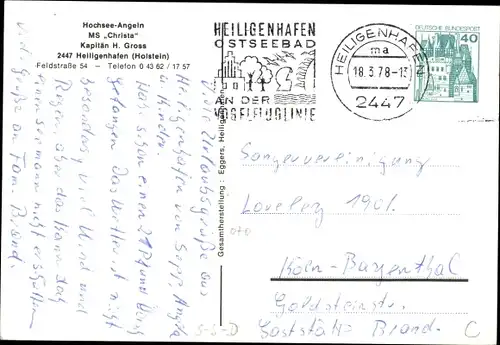 Hochsee-Angeln
MS „Christa"
Kapitän H. Gross
2447 Heiligenhafen (Holstein)
Feldstraße 54 — Telefon 0 43 62 / 17 57
HEILIGENHAFEN
OSTSEEBAD
AN DER
VOGELFLUGLINIE
HEILIGENHAFEN
ma
18.3.78-13
2447
DEUTSCHE BUNDESPOST
40
Gesamtherstellung: Eggers, Heiligenhafen
Viele Urlaubsgrüße aus
Heiligenhafen von Sepp Angela
u. Kinder.
Habe schon einen 21 Pfund
gefangen das Wetter ist nicht
besonders viel Wind und
Regen aber das kann das
nicht
Viele Grüße an Fam. Brand.
Sangervereinigung
1901.
Köln-Bayenthal
Goldsteinstr.
Gaststätte Brand. C
S-3-D